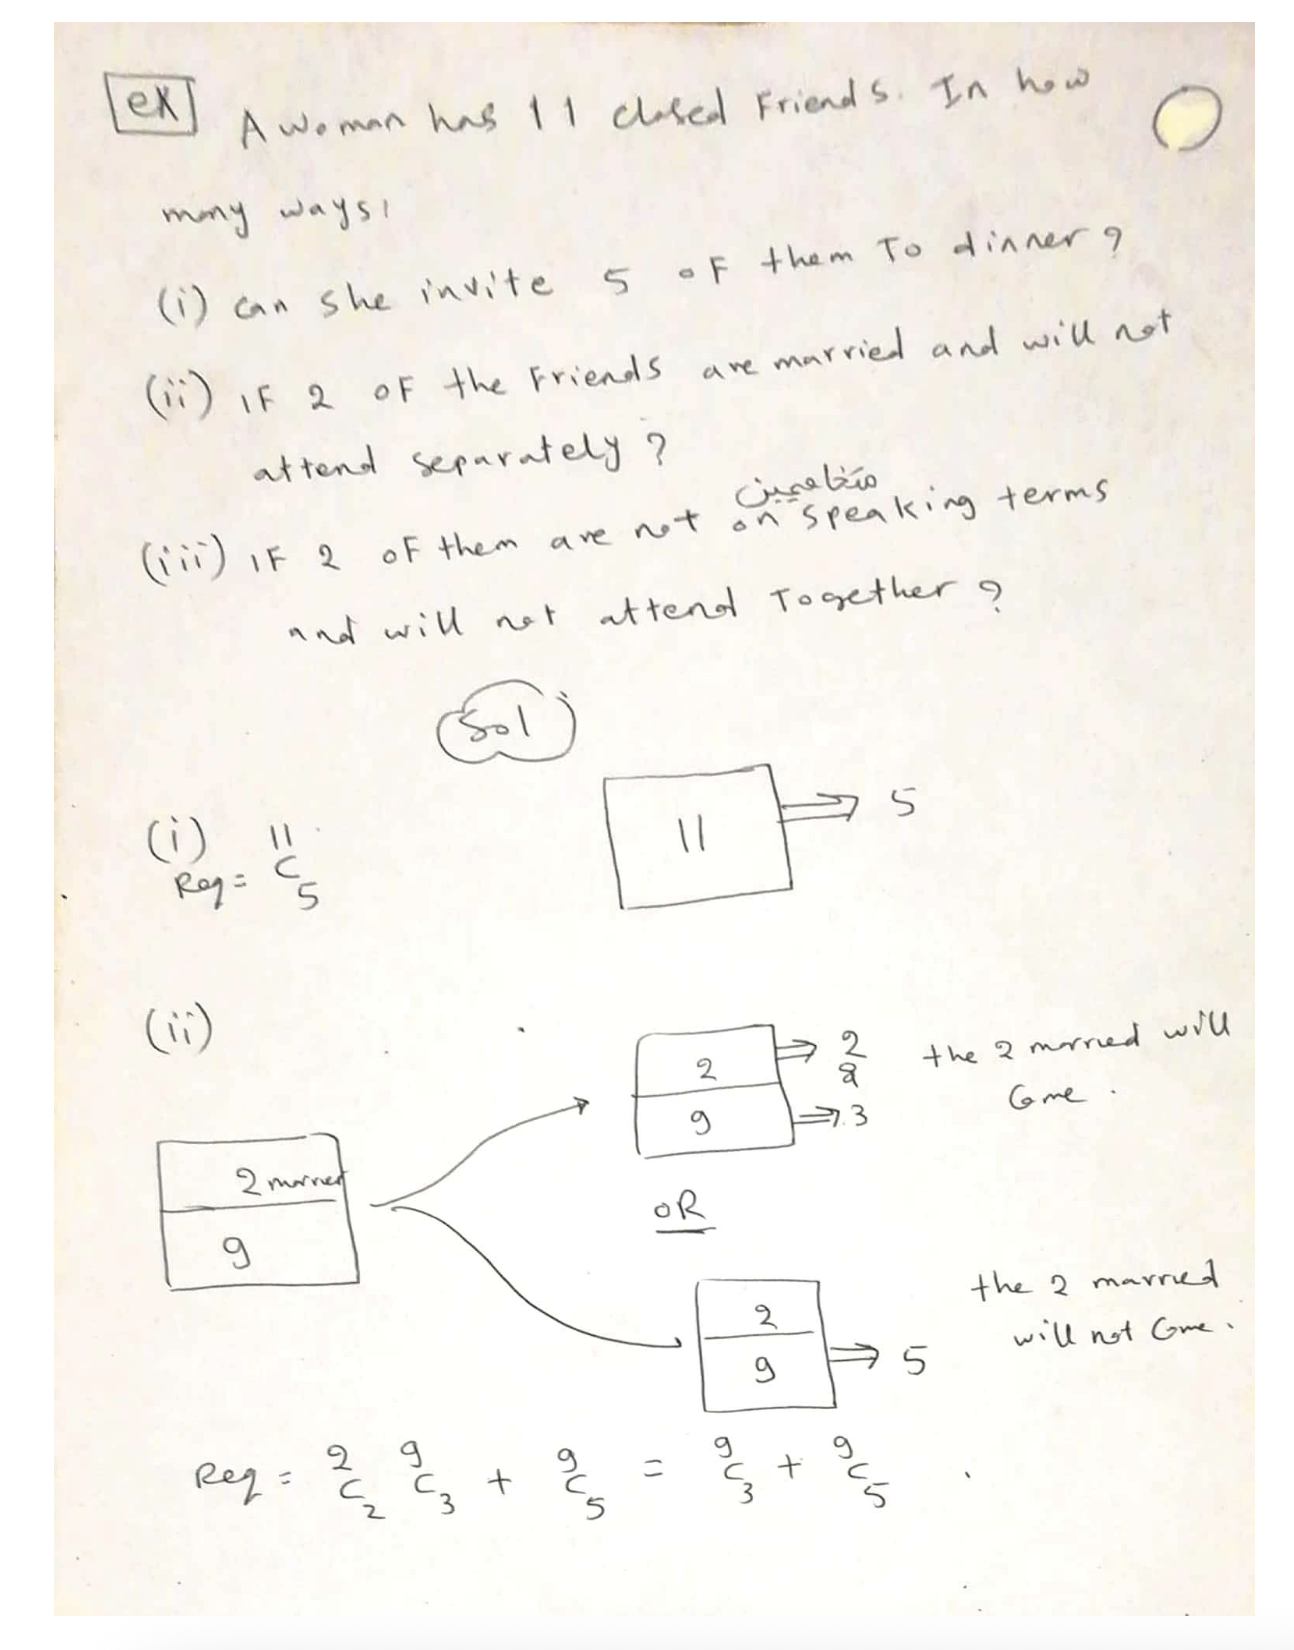 ex A woman has 11 closed Friends. In how
many ways:
(i) can she invite 5 of them To dinner?
(ii) IF 2 OF the Friends are married and will not
attend separately?
متخاصمين
(iii) IF 2 of them are not on speaking terms
and will not attend Together?
Sol
(i) 11 → 5
Req = 11 C 5
(ii)
2 ⇒ 2 the 2 married will
9 ⇒ 3 Come.
2 married
9
OR
2 the 2 married
9 ⇒ 5 will not Come.
Req = 2 C 2 9 C 3 + 9 C 5 = 9 C 3 + 9 C 5 .